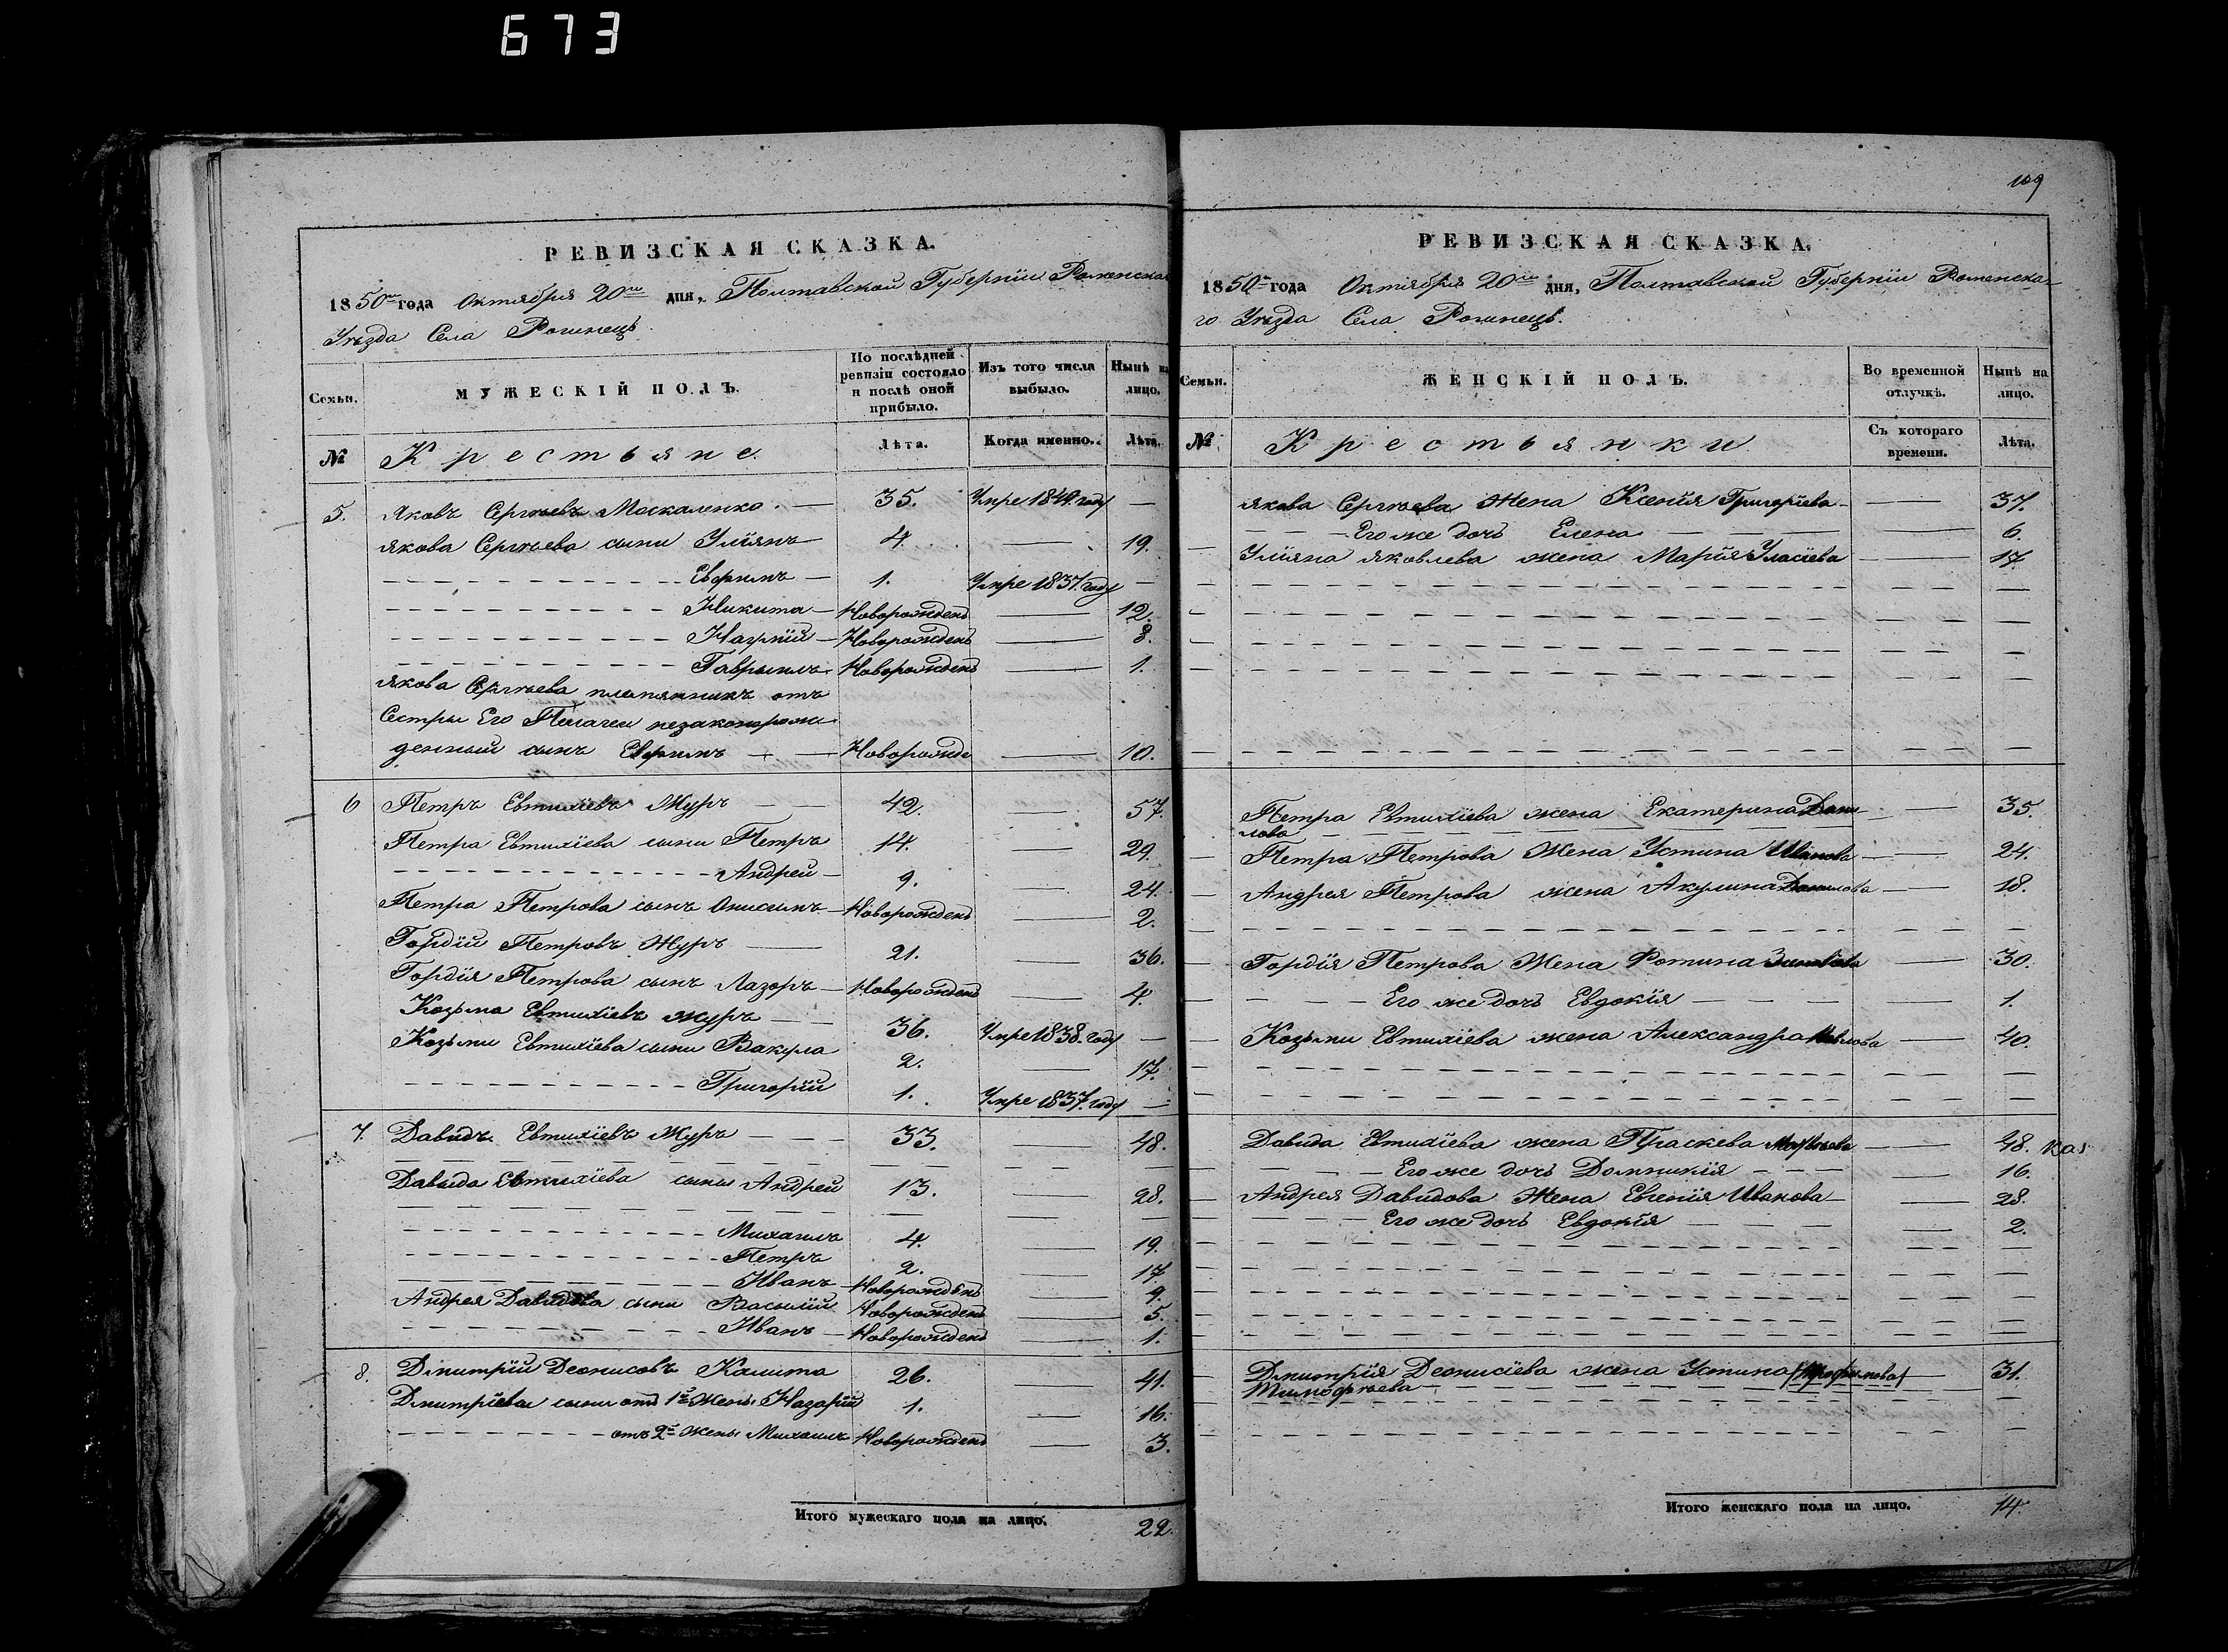 673
РЕВИЗСКАЯ СКАЗКА.
1850го года Октября 20го дня, Полтавской Губернїи Роменска
Уѣзда Села Рогинецъ.
Семьи.
МУЖЕСКІЙ ПОЛЪ.
По послѣдней ревизіи состояло и послѣ оной прибыло.
Изъ того числа выбыло.
Нынѣ на лицо.
№
Крестьяне.
Лѣта.
Когда именно.
Лѣта.
5. Яковъ Сергѣевъ Москаленко. — 35. Умре 1849. году —
Якова Сергѣева сыны Улїянъ 4. — 19.
Евфимъ — 1. Умре 1837. году —
Никита — Новорожденъ — 12.
Новорожденъ — 8.
Гаврыилъ Новорожденъ — 1.
Якова Сергѣева племянникъ отъ
Сестры Его Пелагеи незаконорож
денный сынъ Евфимъ — Новорожде — 10.
6 Петръ Евтихїевъ Журъ — 42. — 57.
Петра Евтихїева сыны Петръ 14. — 29.
Андрей — 9. — 24.
Петра Петрова сынъ Онисимъ Новорожденъ — 2.
Гордїй Петровъ Журъ — 21. — 36.
Гордїя Петрова сынъ Лазоръ — Новорожденъ — 4
Козьма Евтихїевъ Журъ — 36. Умре 1838. году —
Козьмы Евтихїева сыны Вакула 2. — 17.
Григорїй 1. Умре 1837. году —
7. Давидъ Евтихїевъ Журъ — 33. — 48.
Давыда Евтихїева сыны Андрей 13. — 28.
Михаилъ 4. — 19.
Петръ 2. — 17
Иванъ — Новорожденъ — 9.
Андрея Давидова сыны Васылїй Новорожденъ — 5.
Иванъ — Новорожденъ — 1.
8. Дмитрїй Деонисовъ Калита 26. — 41.
Дмитрїева сыны отъ 1й Жены Назарїй 1. — 16.
отъ 2й Жены Михаилъ Новорожденъ — 3.
Итого мужескаго пола на лицо. 22.
109
РЕВИЗСКАЯ СКАЗКА.
1850го года Октября 20го дня, Полтавской Губернїи Роменска-
го Уѣзда Села Рогинецъ.
Семьи.
ЖЕНСКІЙ ПОЛЪ.
Во временной отлучкѣ.
Нынѣ на лицо.
№
Крестьянки
Съ котораго времени.
Лѣта.
Якова Сергѣева Жена Ксенїя Григорїева — 37.
Его же дочь Елена — 6.
Улїяна Яковлева жена Марїя Уласїева — 17
Петра Евтихїева жена Екатерина Дани — 35.
лова
Петра Петрова Жена Устина Иванова — 24.
Андрея Петрова жена Акулина Данилова — 18.
Гордїя Петрова Жена Фотина — 30.
Его же дочь Евдокїя — 1.
Козьмы Евтихїева жена Александра Павлова — 40.
Давида Евтихїева жена Праскева Матвѣева — 48.
Его же дочь Домникїя — 16.
Андрея Давидова Жена Евгенїя Иванова — 28.
Его же дочь Евдокїя — 2.
Дмитрїя Деонисїева жена Устина (Трофимова) — 31.
Тимофѣева
Итого женскаго пола на лицо. 14.